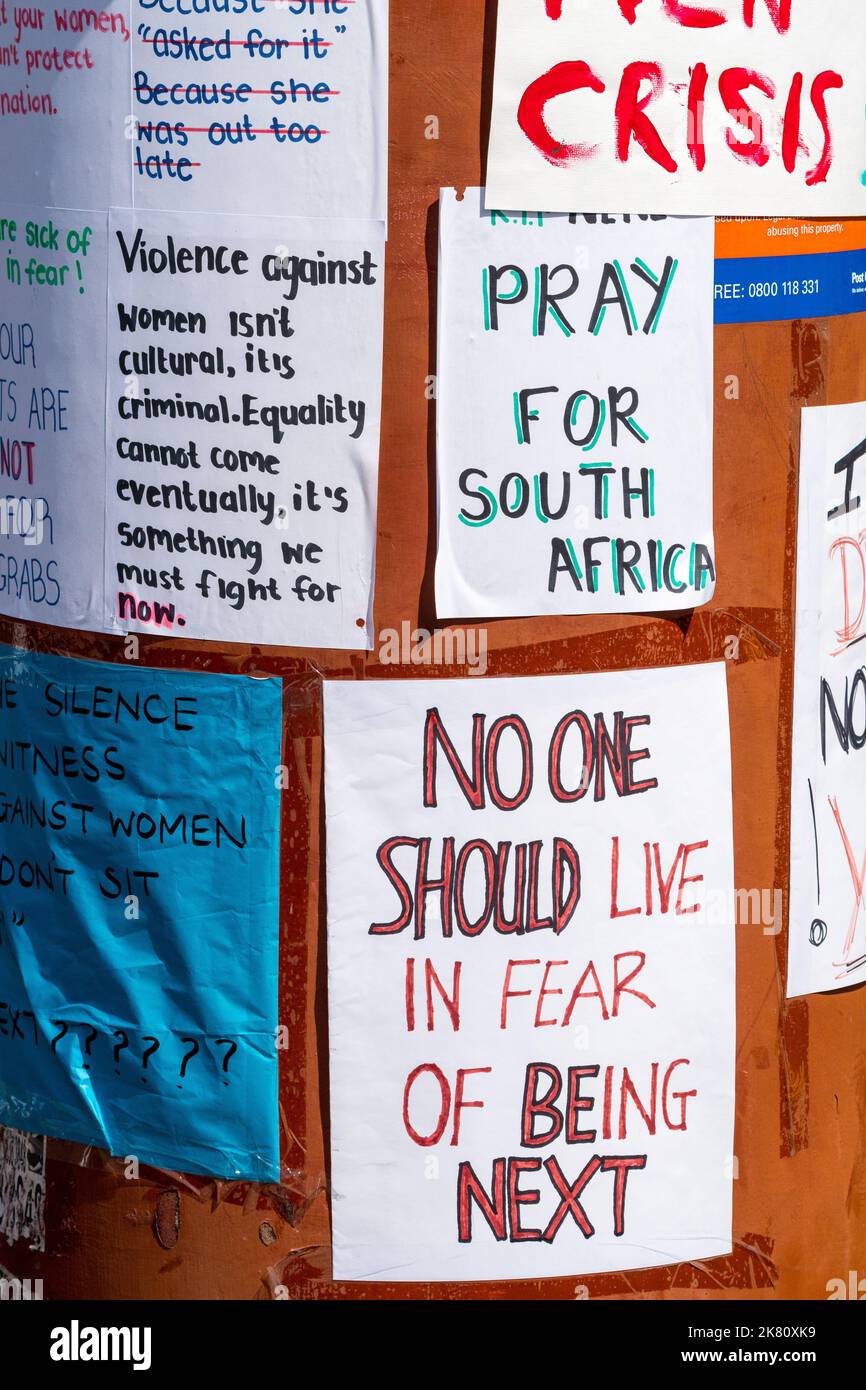 your women,
protect
nation.
Because she
"asked for it"
Because she
was out too
late
CRISIS
sick of
in fear!
ARE
NOT
FOR
GRABS
Violence against
Women isn't
cultural, it is
criminal. Equality
cannot come
eventually, it's
something we
must fight for
now.
R.I.P NENE
PRAY
FOR
SOUTH
AFRICA
abusing this property.
REE: 0800 118 331
Post
SILENCE
WITNESS
AGAINST WOMEN
DON'T SIT
NEXT ??????
NO ONE
SHOULD LIVE
IN FEAR
OF BEING
NEXT
I
NO
!
alamy
Image ID: 2K80XK9
www.alamy.com